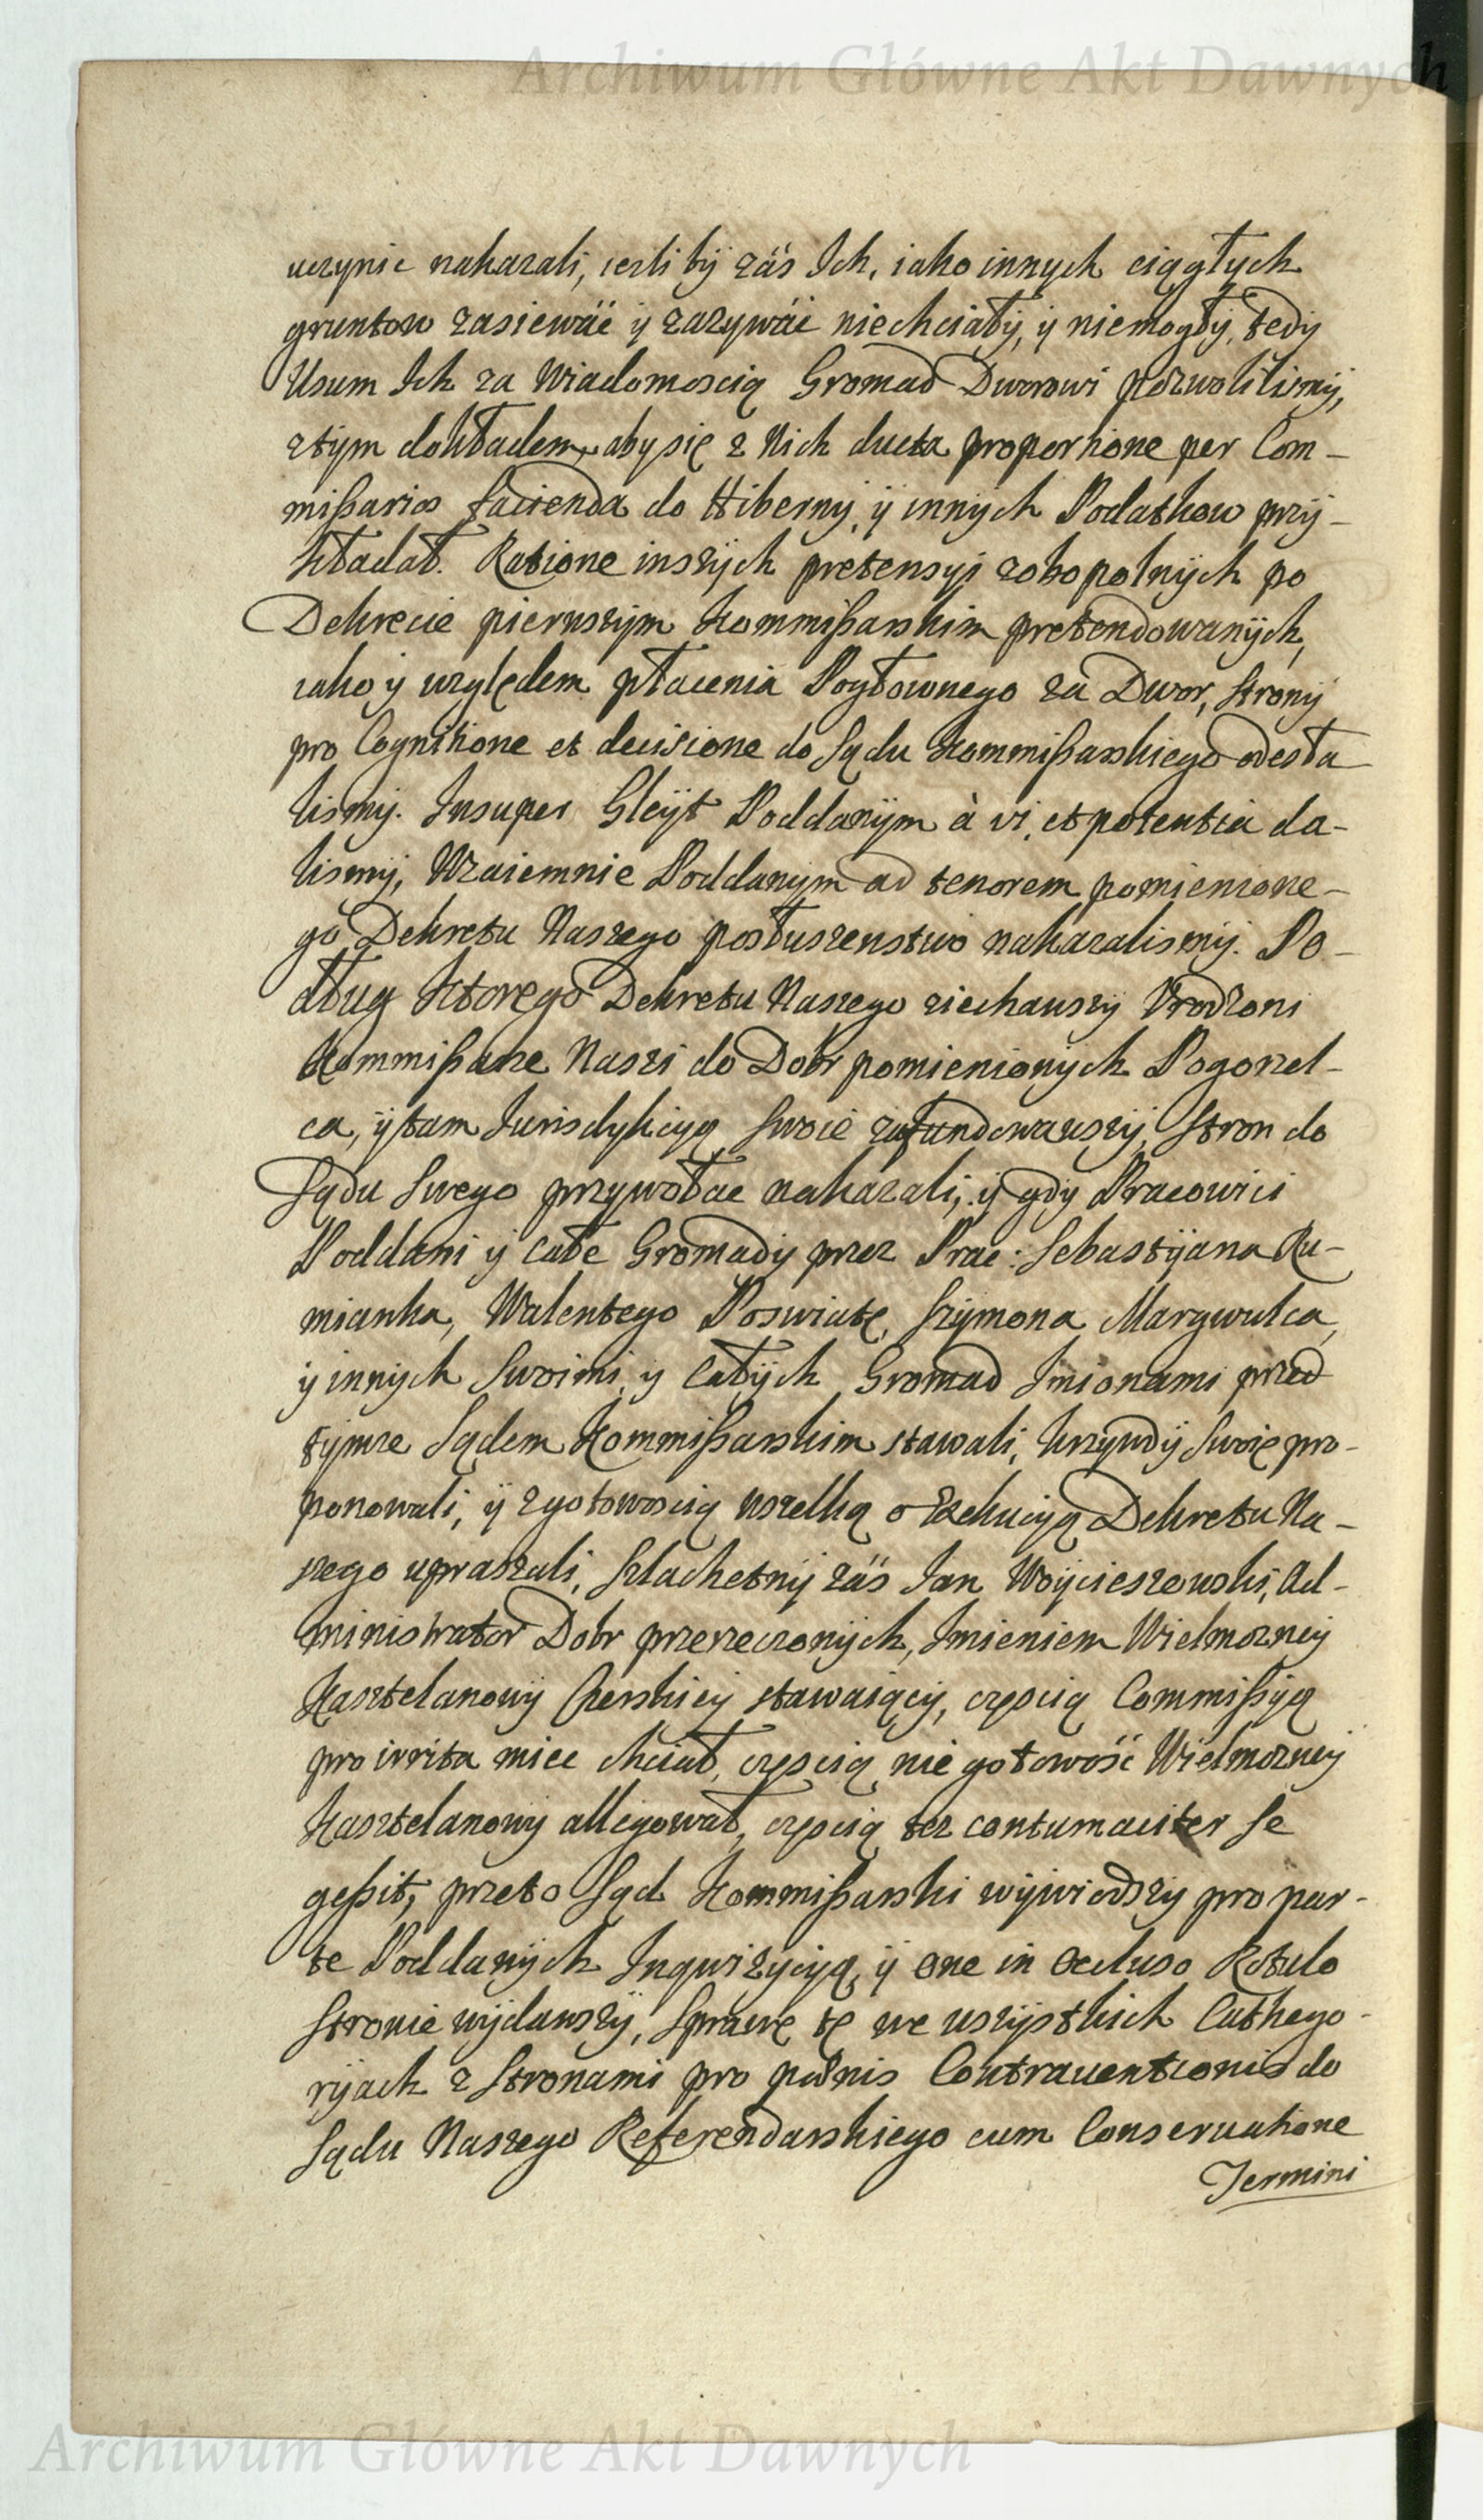 Archiwum Główne Akt Dawnych
uczynic nakazali, iesli by zás Ich, iako innych ciągłych
gruntow zasiewáć y zazywáć niechciały, y niemogły, tedy
Usum Ich za Wiadomoscią Gromad Dworowi pozwolilismy,
z tym dokładem, aby się z Nich ducta proportione per Com-
mißarios facienda do Hiberny, y innych Podatkow przy-
kładał. Ratione inszych pretensyi zobopolnych po
Dekrecie pierwszym Kommißarskim pretendowanych,
iako y względem płacenia Pogłownego za Dwor, Strony
pro Cognitione et decisione do Sądu Kommißarskiego odesła
lismy. Insuper Gleyt Poddanym à vi, et potentia da-
lismy, Wzaiemnie Poddanym ad tenorem pomienione-
go Dekretu Naszego posłuszenstwo nakazalismy. Po-
dług ktorego Dekretu Naszego ziechawszy Vrodzoni
Kommißarze Naszi do Dobr pomienionych Pogorzel-
ca, y tam Iurisdykcyą Swoię zafundowawszy, Stron do
Sądu Swego przywołac nakazali, y gdy Pracowici
Poddani y całe Gromady przez Prac: Sebastyana Ru-
mianka, Walentego Poswiatę, Szymona Marywulca,
y innych Swoimi, y Całych Gromad Imionami przed
tymze Sądem Kommißarskim stawali, krzywdy Swoię pro-
ponowali, y z gotowoscią wszelką o Exekucyą Dekretu Na-
szego upraszali, Szlachetny zás Ian Woycieszowski, Ad-
ministrator Dobr przerzeczonych, Imieniem Wielmozney
Kasztelanowy Czerskiey stawaiący, częscią Commißyą
pro irrita miec chciał, częscią nie gotowość Wielmozney
Kasztelanowy allegował, częscią tez contumaciter se
geßit, przeto Sąd Kommißarski wywiodszy pro par-
te Poddanych Inqwizycyą, y one in Occluso Rotulo
Stronie wydawszy, Sprawę tę we wszystkich Cathego-
ryach z Stronami pro pœnis Contraventionis do
Sądu Naszego Referendarskiego cum Conservatione
Termini
Archiwum Główne Akt Dawnych